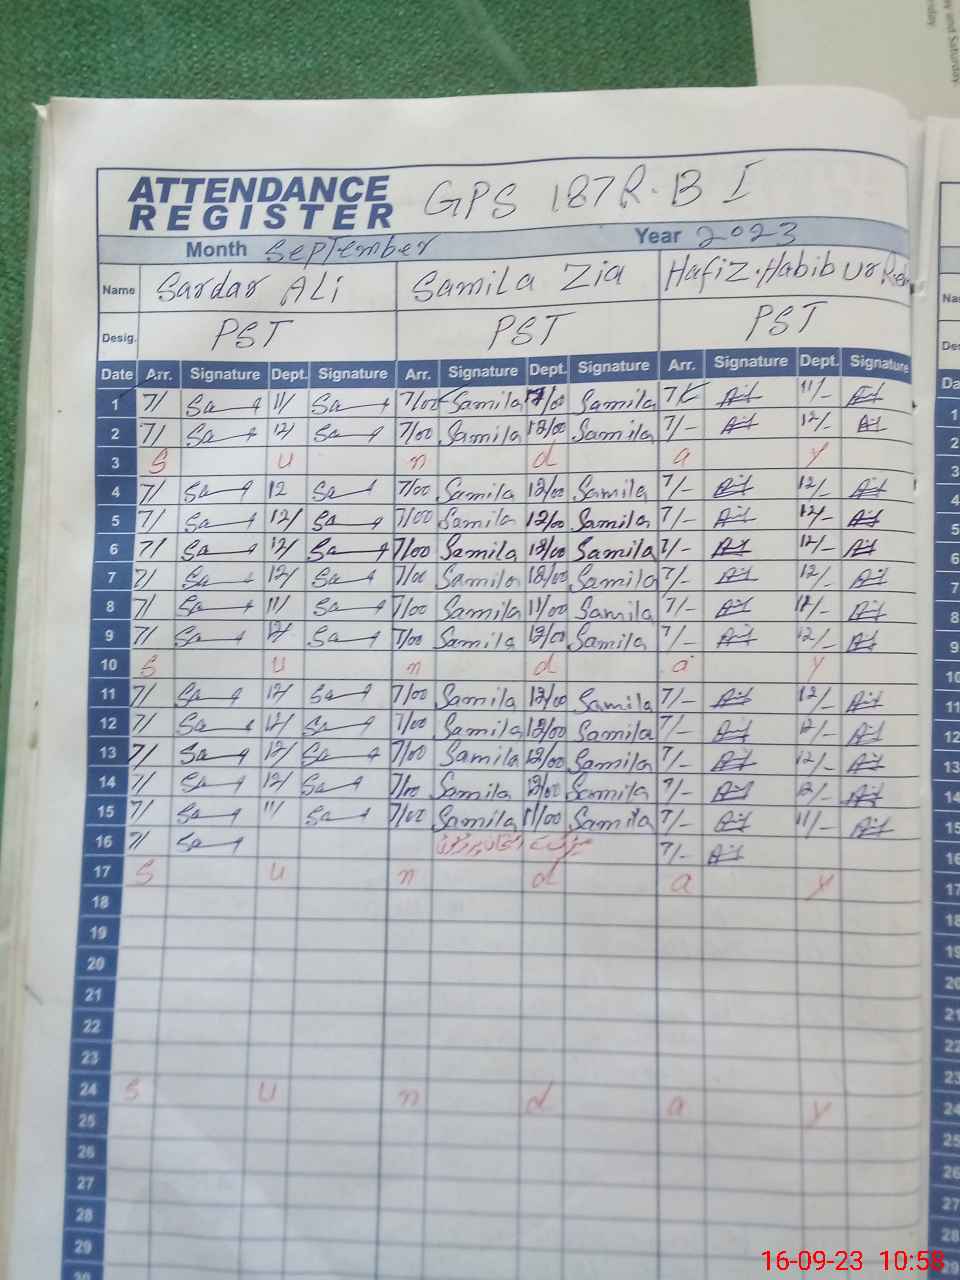 day and Saturday.
ATTENDANCE
REGISTER
GPS 187R.B I
Month September Year 2023
Name Sardar ALi Samila Zia Hafiz.Habib ur
Desig. PST PST PST
Date Arr. Signature Dept. Signature Arr. Signature Dept. Signature Arr. Signature Dept. Signature
1 7/ Sa 11/ Sa 7/00 Samila /00 Samila 7/
2 7/ Sa 12/ Sa 7/00 Samila 12/00 Samila 7/- 12/-
3 S u n d a y
4 7/ Sa 12 Sa 7/00 Samila 12/00 Samila 7/- 12/-
5 7/ Sa 12/ Sa 7/00 Samila 12/00 Samila 7/- 12/-
6 7/ Sa 12/ Sa 7/00 Samila 12/00 Samila 7/- 12/-
7 7/ Sa 12/ Sa 7/00 Samila 12/00 Samila 7/- 12/-
8 7/ Sa 11/ Sa 7/00 Samila 11/00 Samila 7/-
9 7/ Sa 12/ Sa 7/00 Samila 12/00 Samila 7/- 12/-
10 S u n d a y
11 7/ Sa 12/ Sa 7/00 Samila 12/00 Samila 7/- 12/-
12 7/ Sa 12/ Sa 7/00 Samila 12/00 Samila 7/- 12/-
13 7/ Sa 12/ Sa 7/00 Samila 12/00 Samila 7/- 12/-
14 7/ Sa 12/ Sa 7/00 Samila 12/00 Samila 7/- 12/-
15 7/ Sa 11/ Sa 7/00 Samila 11/00 Samila 7/- 11/-
16 7/ Sa 7/-
17 S u n d a y
18
19
20
21
22
23
24 S u n d a y
25
26
27
28
29
16-09-23 10:58